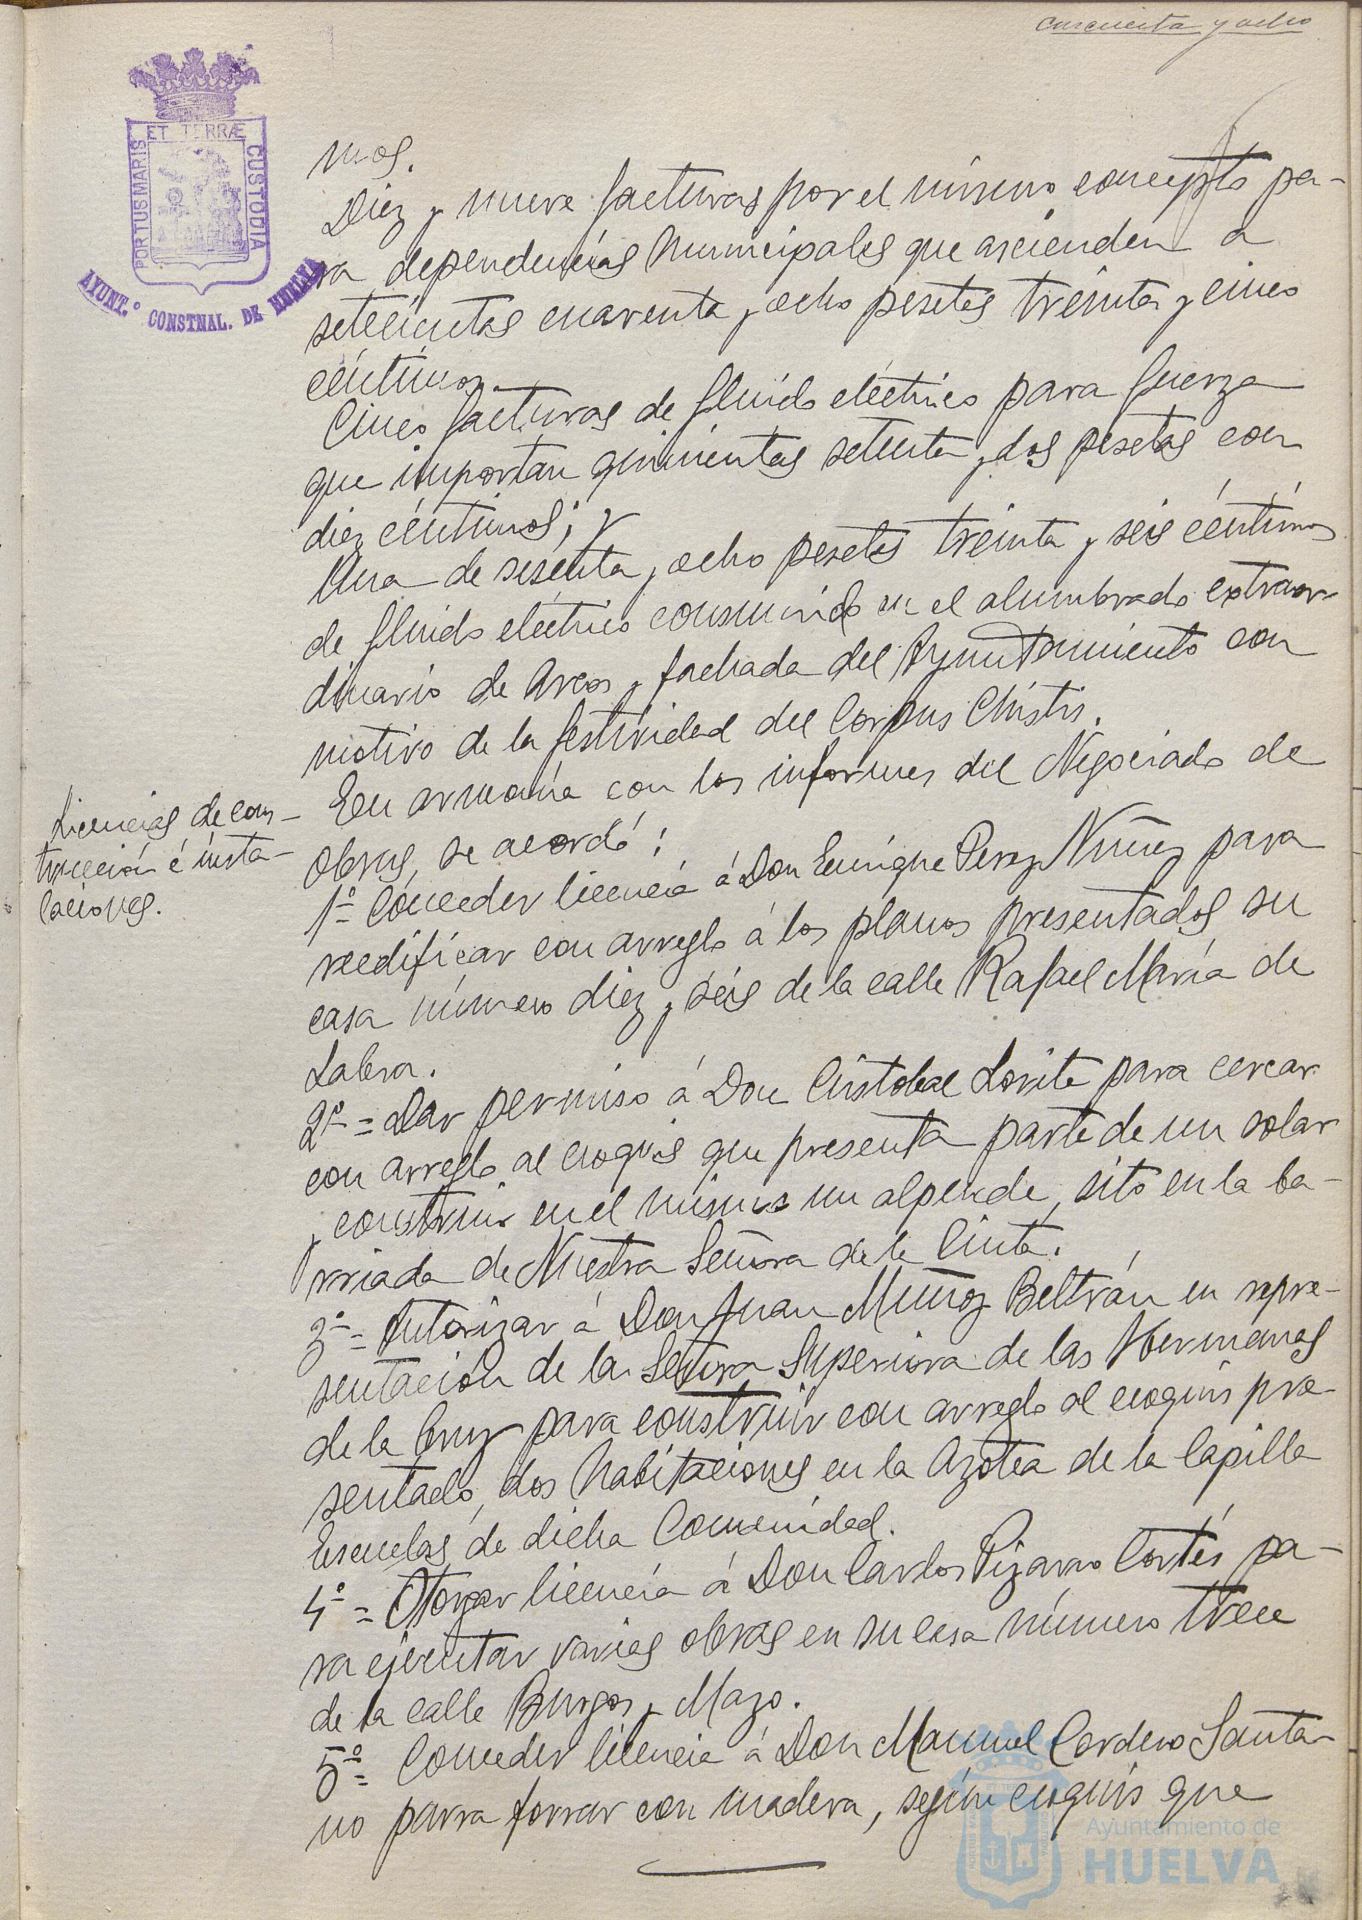 cincuenta y ocho
PORTUS MARIS ET TERRÆ CUSTODIA
AYUNT.º CONSTNAL. DE HUELVA
mos.
Diez y nueve facturas por el mismo concepto pa-
ra dependencias Municipales que ascienden a
setecientas cuarenta y ocho pesetas treinta y cinco
céntimos.
Cinco facturas de fluido eléctrico para fuerza
que importan quinientas setenta y dos pesetas con
diez céntimos; y
Una de sesenta y ocho pesetas treinta y seis céntimos
de fluido eléctrico consumido en el alumbrado extraor-
dinario de Arcos y fachada del Ayuntamiento con
motivo de la festividad del Corpus Christis.
Licencias de cons-
trucción é insta-
laciones.
En armonía con los informes del Negociado de
Obras, se acordó:
1º = Conceder licencia á Don Enrique Perez Nuñez para
reedificar con arreglo á los planos presentados su
casa número diez y séis de la calle Rafael María de
Labra.
2º = Dar permiso á Don Cristobal Lorite para cercar
con arreglo al croquis que presenta parte de un solar
y construir en el mismo un alpende, sito en la ba-
rriada de Nuestra Señora de la Cinta.
3º = Autorizar á Don Juan Muñoz Beltrán en repre-
sentación de la Señora Superiora de las Hermanas
de la Cruz para construir con arreglo al croquis pre-
sentado, dos habitaciones en la Azotea de la Capilla
Escuelas de dicha Comunidad.
4º = Otorgar licencia á Don Carlos Pizarro Cortés pa-
ra ejecutar varias obras en su casa número trece
de la calle Burgos y Mazo.
5º = Conceder licencia á Don Manuel Cordero Santa-
no parra forrar con madera, según croquis que
Ayuntamiento de
HUELVA